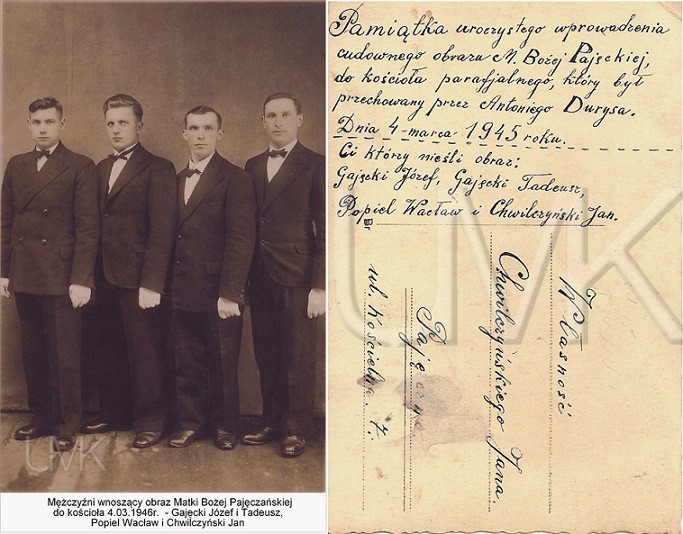 Pamiątka uroczystego wprowadzenia
cudownego obrazu M. Bożej Pajęckiej,
do kościoła parafjalnego, który był
przechowany przez Antoniego Durysa.
Dnia 4-marca 1945 roku.
Ci którzy nieśli obraz:
Gajęcki Józef, Gajęcki Tadeusz,
Popiel Wacław i Chwilczyński Jan.
Własność
Chwilczyńskiego Jana.
Pajęczno
ul. Kościelna 7.
UMK
UMK
Mężczyźni wnoszący obraz Matki Bożej Pajęczańskiej
do kościoła 4.03.1946r. - Gajęcki Józef i Tadeusz,
Popiel Wacław i Chwilczyński Jan